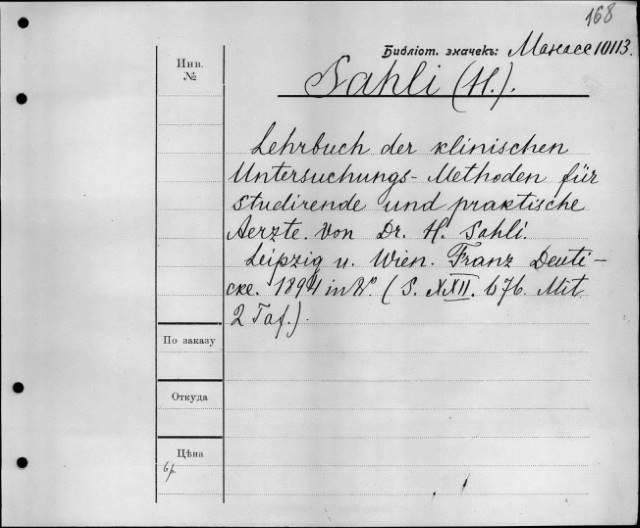 168
Библіот. значекъ: Манассе 10113.
Инв.
№
Sahli (H.).
Lehrbuch der klinischen
Untersuchungs-Methoden für
studirende und praktische
Aerzte. Von Dr. H. Sahli.
Leipzig u. Wien. Franz Deuti-
cke. 1894 in 8º. (S. XXII. 676. Mit
2 Taf.).
По заказу
Откуда
Цѣна
6р